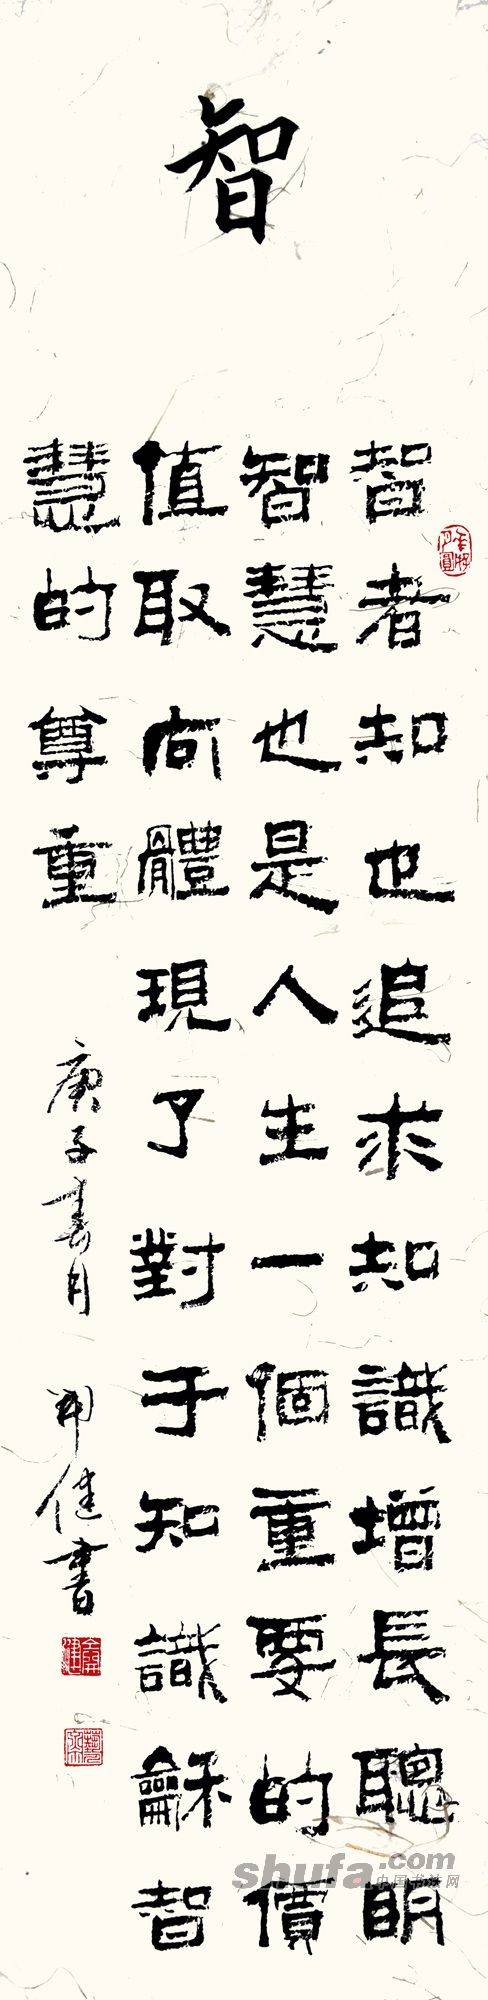 智
智者知也追求知識增長聰明
智慧也是人生一個重要的價
值取向體現了對于知識龢智
慧的尊重
庚子春月
健書
shufa.com
中国书法网